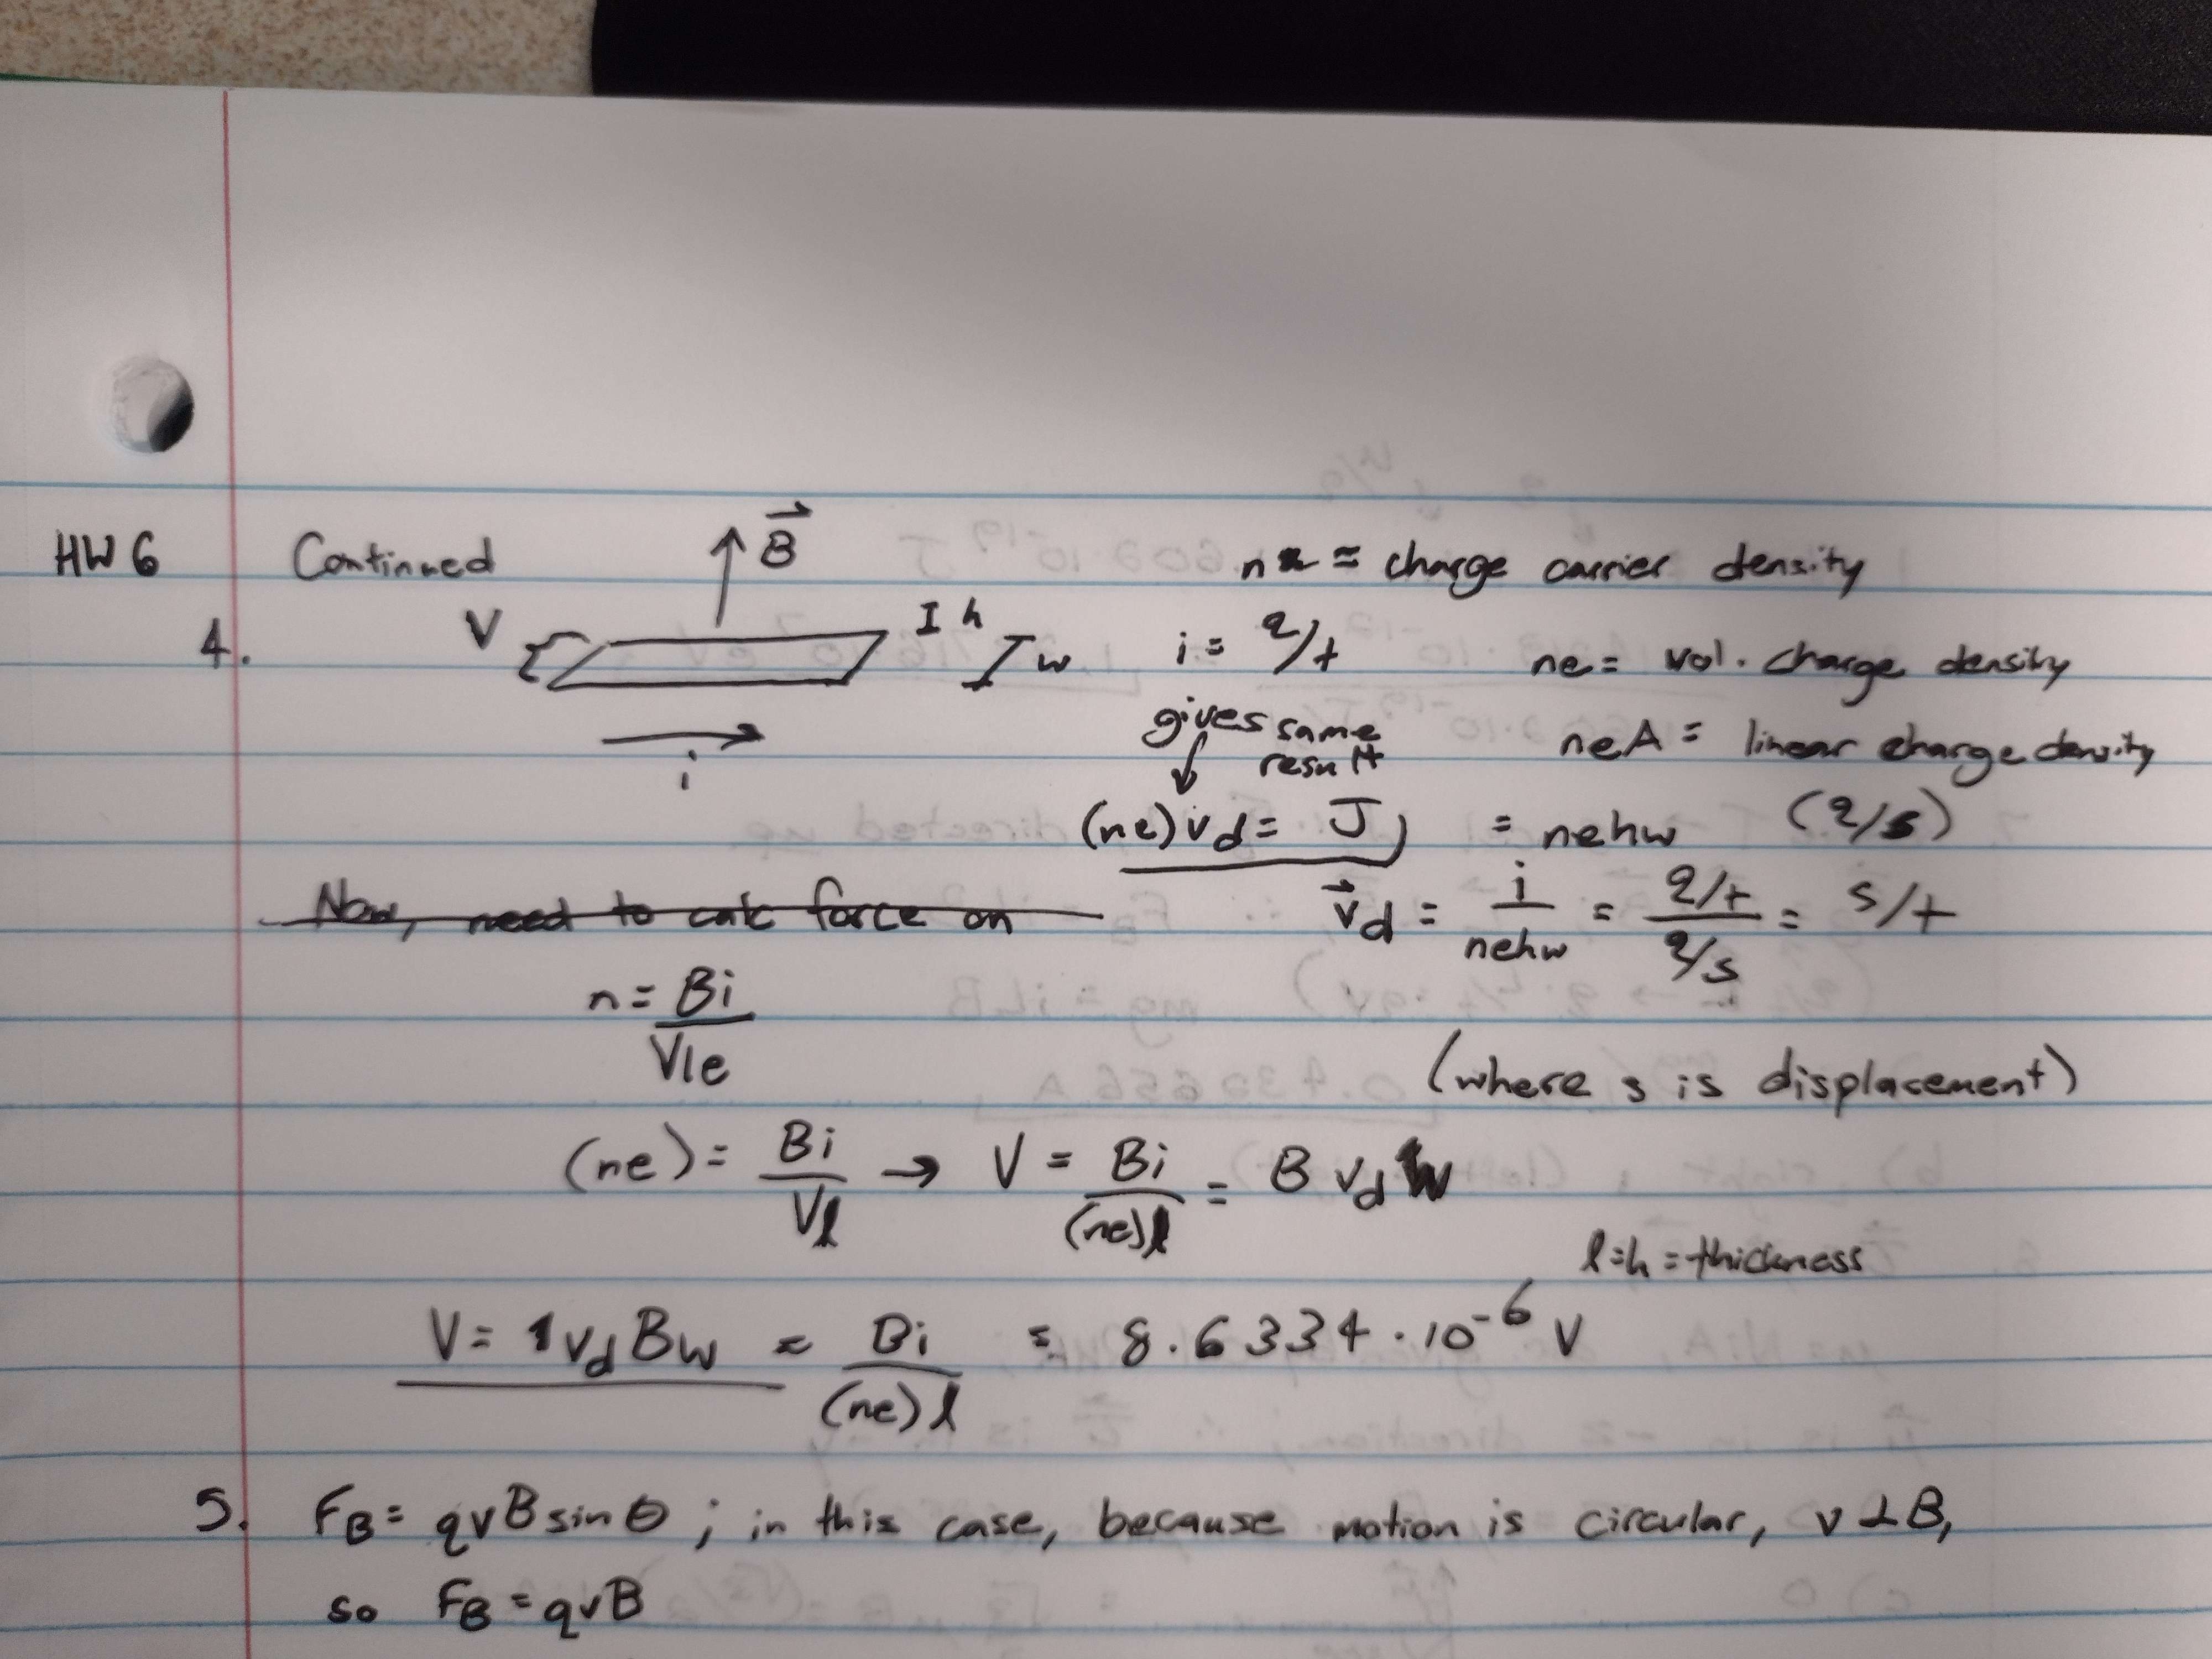 HW 6 Continued B⃗ n = charge carrier density
4. V I h w i = q/t ne = vol. charge density
i gives same result neA = linear charge density
(ne)vd = J = nehw (q/s)
Now, need to calc force on v⃗d = i/nehw = (q/t)/(q/s) = s/t
n = Bi/Vle
(where s is displacement)
(ne) = Bi/Vl → V = Bi/(ne)l = B vd w
l=h=thickness
V = vd Bw = Bi/(ne)l = 8.6334 · 10⁻⁶ V
5. FB = qvB sin θ ; in this case, because motion is circular, v⊥B,
so FB = qvB